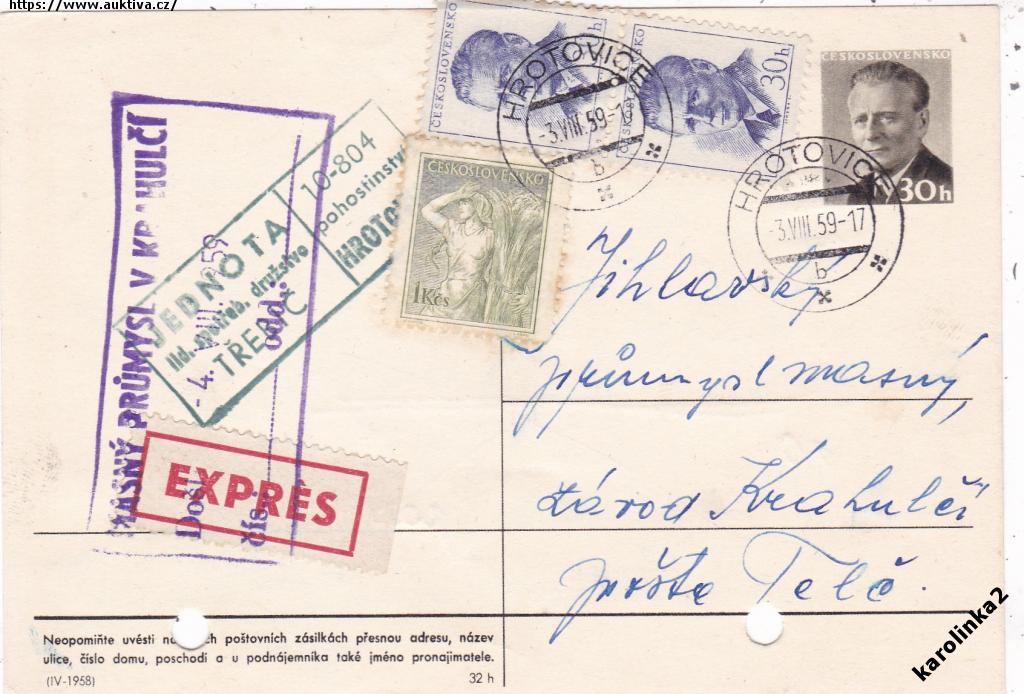 https://www.auktiva.cz/
ČESKOSLOVENSKO
h
ČESKOSLOVENSKO
30h
ČESKOSLOVENSKO
30h
ČESKOSLOVENSKO
1Kčs
HROTOVICE
-3.VIII.59-1
b
HROTOVICE
-3.VIII.59-17
b
MASNÝ PRŮMYSL V KRAHULČÍ
Došlo
- 4. VIII. 1959
čís.
odd.
JEDNOTA
lid. spotřeb. družstvo
TŘEBÍČ
10-804
pohostinství
HROTOV
EXPRÉS
Jihlavský
průmysl masný,
závod Krahulčí
pošta Telč.
Neopomiňte uvésti na poštovních zásilkách přesnou adresu, název
ulice, číslo domu, poschodí a u podnájemníka také jméno pronajimatele.
(IV-1958)
32 h
karolinka2